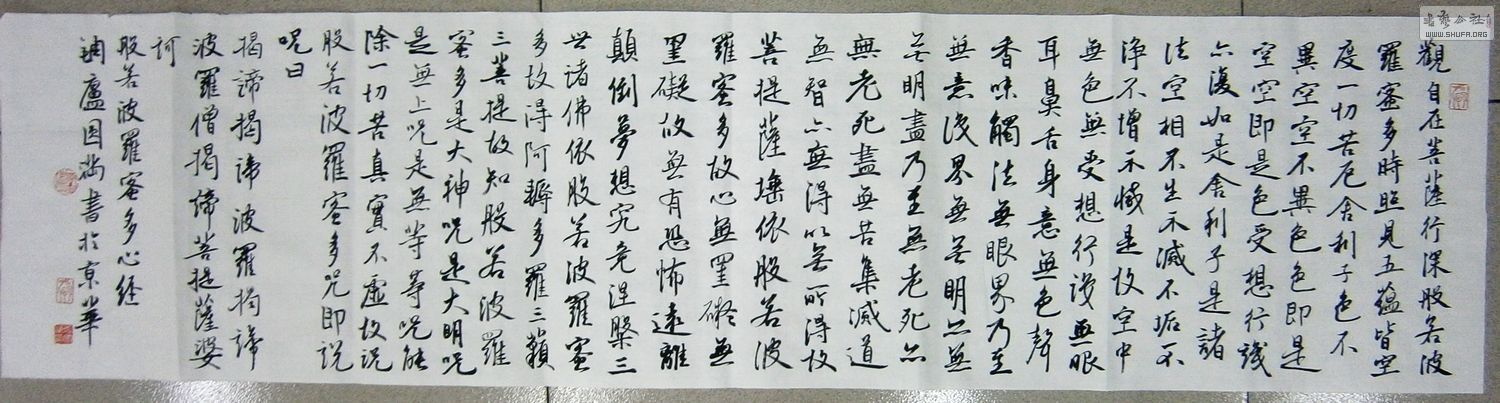 觀自在菩薩行深般若波
羅蜜多時照見五蘊皆空
度一切苦厄舍利子色不
異空空不異色色即是
空空即是色受想行識
亦復如是舍利子是諸
法空相不生不滅不垢不
淨不增不減是故空中
無色無受想行識無眼
耳鼻舌身意無色聲
香味觸法無眼界乃至
無意識界無无明亦無
无明盡乃至無老死亦
無老死盡無苦集滅道
無智亦無得以无所得故
菩提薩埵依般若波
羅蜜多故心無罣礙無
罣礙故無有恐怖遠離
顛倒夢想究竟涅槃三
世諸佛依般若波羅蜜
多故得阿耨多羅三藐
三菩提故知般若波羅
蜜多是大神咒是大明咒
是無上咒是無等等咒能
除一切苦真實不虛故說
般若波羅蜜多咒即說
咒曰
揭諦揭諦波羅揭諦
波羅僧揭諦菩提薩婆
訶
般若波羅蜜多心经
廬因書於京華
WWW.SHUFA.ORG